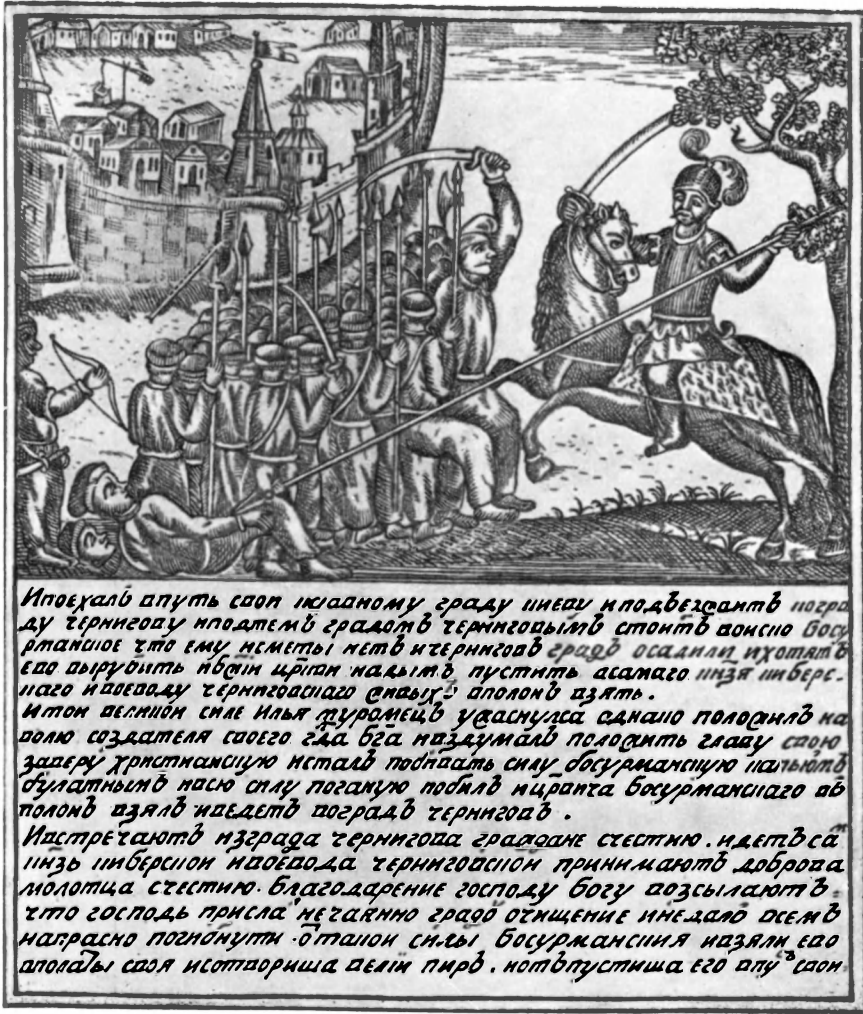 Ипоехалъ впуть свои кславному граду киеву иподъезжаитъ погра
ду чернигову иподтемъ градомъ черниговымъ стоитъ воиско босу
рманское что ему исметы нетъ ичерниговъ градъ осадили ихотятъ
его вырубить ибжіи цркви надымъ пустить асамаго кнзя киберс-
каго ивоеводу черниговскаго живыхъ вполонъ взять.
итои великои силе Илья муромецъ ужаснулса однако положилъ на
волю создателя своего гда бга ивздумалъ положить главу свою
заверу христианскую исталъ побивать силу босурманскую копьемъ
булатнымъ ивсю силу поганую побилъ ицрвича босурманскаго въ
полонъ взялъ иведетъ воградъ черниговъ.
Ивстречаютъ изграда чернигова граждане счестию. идетъ са
кнзь киберскои ивоевода черниговскои принимаютъ доброва
молотца счестию. благодарение господу богу возсылаютъ.
что господь присла нечаянно граду очищение инедалъ всемъ
напрасно погибнути отакои силы босурманския ивзяли его
вполаты своя исотвориша велии пиръ. иотъпустиша его впу свои